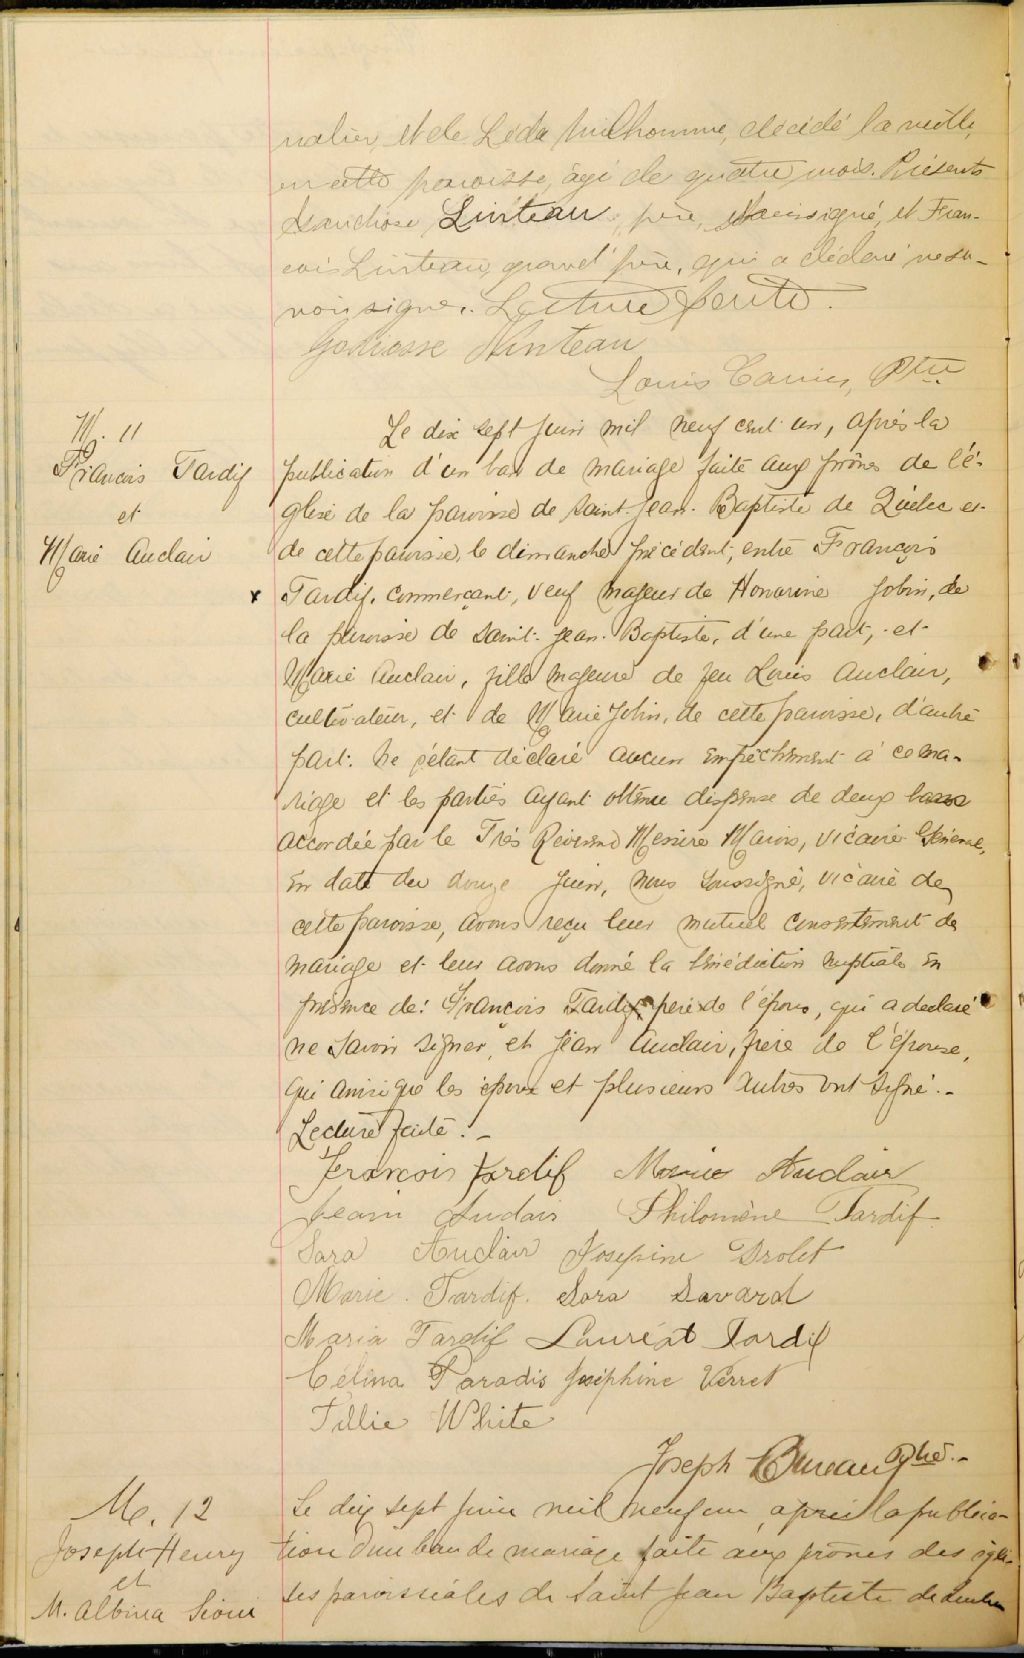 nalier, et de Léda Prilhomme, décédé la veille,
en cette paroisse, âgé de quatre mois. Présents
Linteau, père, soussigné, et Fran-
cois Linteau, grand'père, qui a déclaré ne sa-
voir signer. Lecture faite.
Linteau
Louis Ptre
M. 11
François Tardif
et
Marie Auclair
Le dix sept juin mil neuf cent un, après la
publication d'un ban de mariage faite aux prônes de l'é-
glise de la paroisse de Saint-Jean-Baptiste de Québec et
de cette paroisse, le dimanche précédent, entre François
x Tardif, commerçant, veuf majeur de Honorine Jobin, de
la paroisse de Saint-Jean-Baptiste, d'une part, et
Marie Auclair, fille majeure de feu Louis Auclair,
cultivateur, et de Marie Jobin, de cette paroisse, d'autre
part. Ne s'étant déclaré aucun empêchement à ce ma-
riage et les parties ayant obtenu dispense de deux bans
accordée par le Très Révérend Messire Marois, vicaire Général,
en date du douze juin, nous soussigné, vicaire de
cette paroisse, avons reçu leur mutuel consentement de
mariage et leur avons donné la bénédiction nuptiale en
présence de: François Tardif, père de l'époux, qui a declaré
ne savoir signer, et Jean Auclair, frère de l'épouse,
qui ainsi que les époux et plusieurs autres ont signé.-
Lecture faite.-
François Tardif Marie Auclair
Jean Auclair Philomène Tardif
Sara Auclair Josephine Drolet
Marie Tardif. Sara Savard
Maria Tardif Lauréat Tardif
Célina Paradis Joséphine Verret
Tillie White
Joseph Bureau Ptre.-
M. 12
Joseph Henry
et
M. Albina Sioui
Le dix sept juin mil neuf un, après la publica-
tion d'un ban de mariage faite aux prônes des égli-
ses paroissiales de Saint Jean Baptiste de